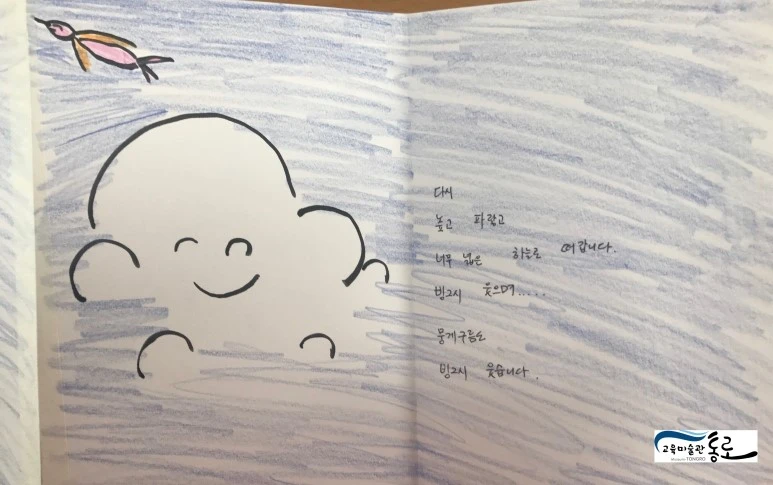 다시
높고 파랗고
너무 넓은 하늘로 떠 갑니다.
빙그시 웃으며.....
뭉게구름도
빙그시 웃습니다.
교육미술관 통로